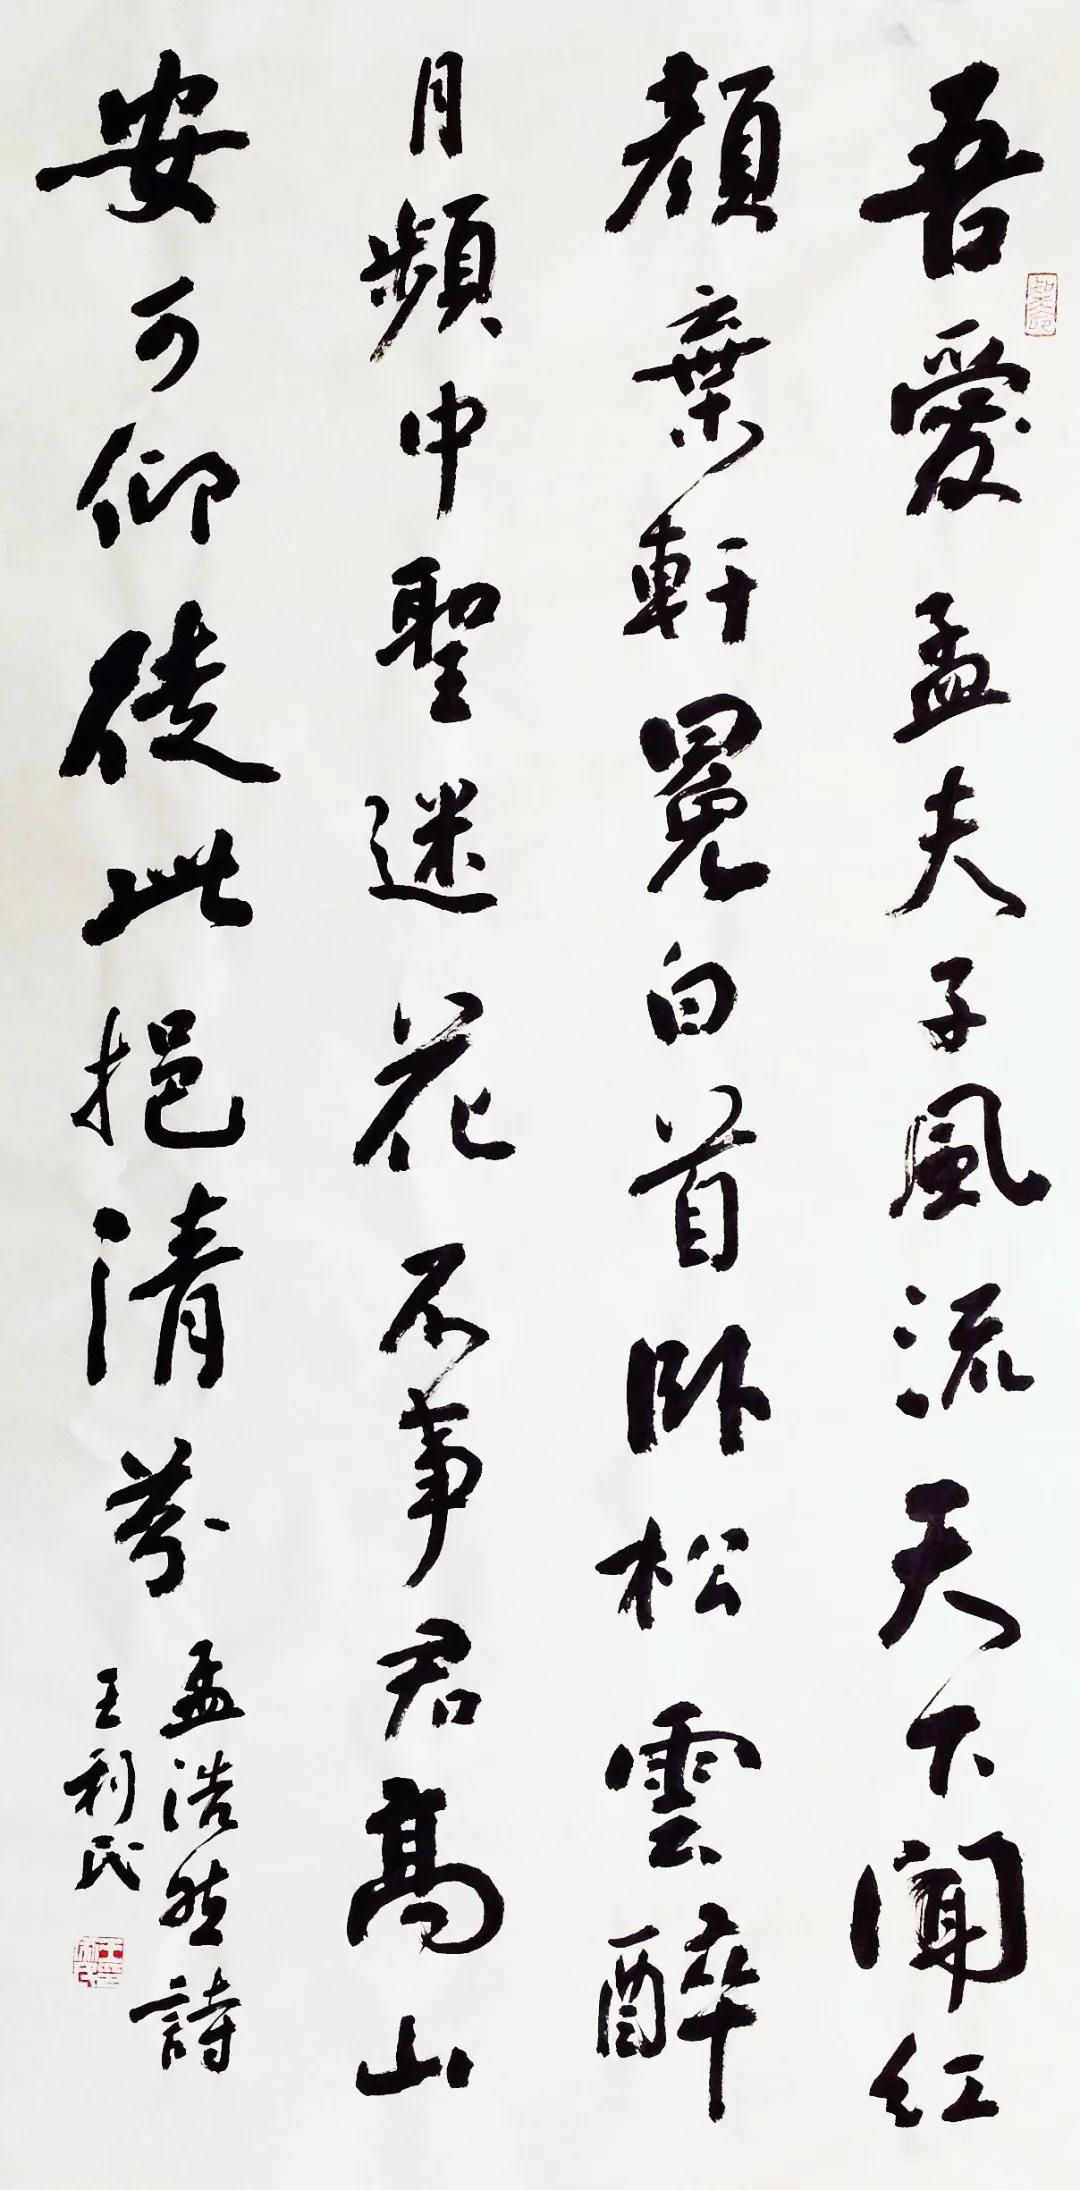 吾愛孟夫子風流天下聞紅
顏棄軒冕白首臥松雲醉
月頻中聖迷花不事君高山
安可仰徒此挹清芬
孟浩然詩
王利民